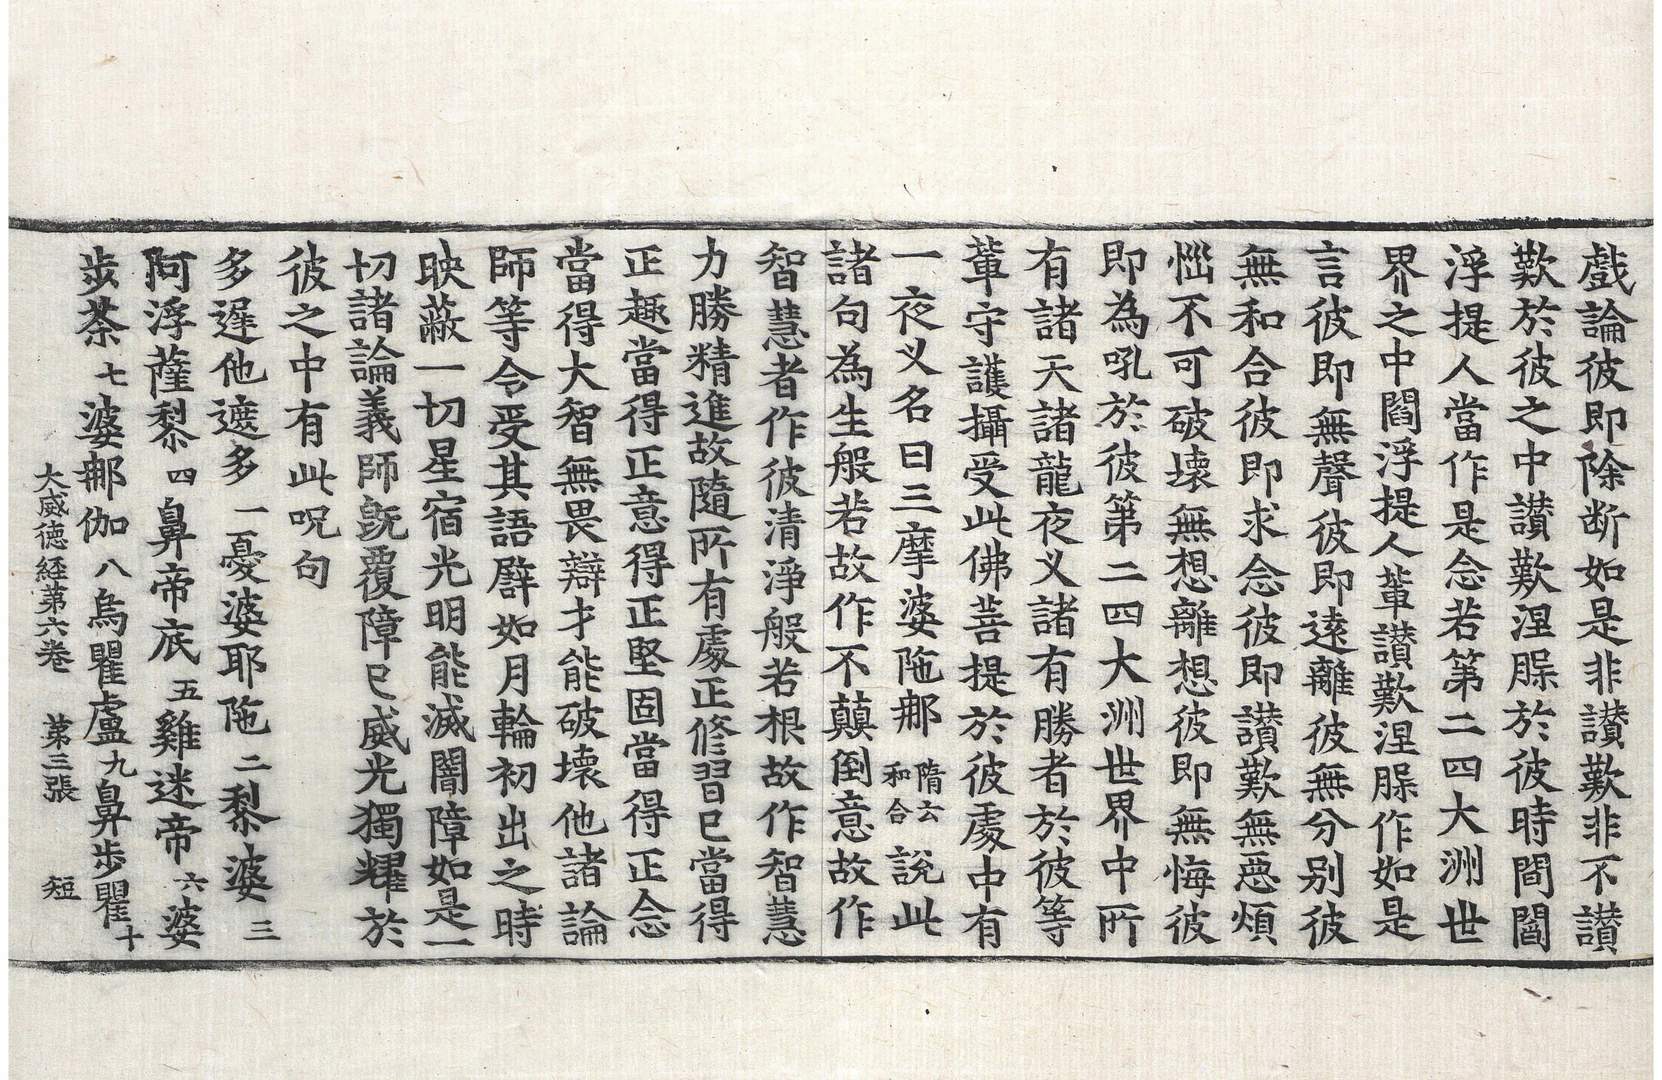 戲論彼即除断如是非讃歎非不讃
歎於彼之中讃歎涅腂於彼時閻閻
浮提人當作是念若第二四大洲世
界之中閻浮提人軰讃歎涅腂作如是
言彼即無聲彼即遠離彼無分别彼
無和合彼即求念彼即讃歎無悪煩
惱不可破壊無想離想彼即無悔彼
即為吼於彼第二四大洲世界中所
有諸天諸龍夜义諸有勝者於彼等
軰守護攝受此佛菩提於彼處中有
一夜义名曰三摩婆陁那 隋云和合 説此
諸句為生般若故作不顛倒意故作
智慧者作彼清淨般若根故作智慧
力勝精進故隨所有處正修習已當得
正趣當得正意得正堅固當得正念
當得大智無畏辯才能破壊他諸論
師等令受其語譬如月輪初出之時
映蔽一切星宿光明能滅闇障如是一
切諸論義師旣覆障已威光獨耀於
彼之中有此呪句
多遟他遮多 一 憂婆耶陁 二 黎婆 三
阿浮薩黎 四 鼻帝底 五 雞迷帝 六 婆
步荼 七 婆那伽 八 烏瞿盧 九 鼻步瞿 十
大威徳経第六巻 第三張 短